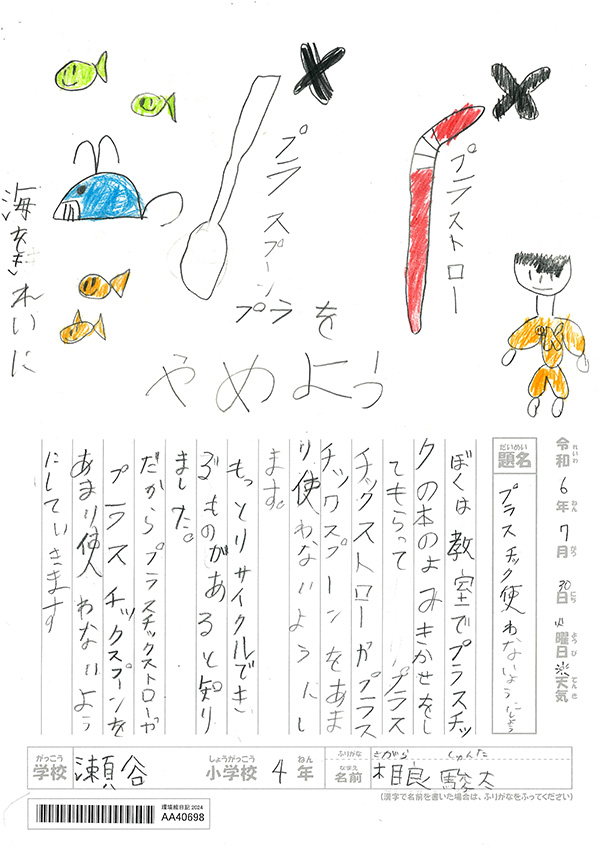 海をきれいに
プラスプーン
プラストロー
プラを
やめよう
令和6年7月30日火曜日 天気
れいわ ねん がつ にち ようび てんき
だいめい
題名
プラスチック使わないようにしよう
ぼくは教室でプラスチッ
クの本のよみきかせをし
てもらって プラス
チックストローかプラス
チックスプーンをあま
り使わないようにし
ます。
もっとリサイクルでき
るものがあると知り
ました。
だからプラスチックストローか
プラスチックスプーンを
あまり使わないよう
にしていきます
がっこう しょうがっこう ねん
学校 瀬谷 小学校 4年
ふりがな さがら しゅんた
なまえ
名前 相良 駿太
(漢字で名前を書いた場合は、ふりがなをふってください)
環境絵日記2024
AA40698